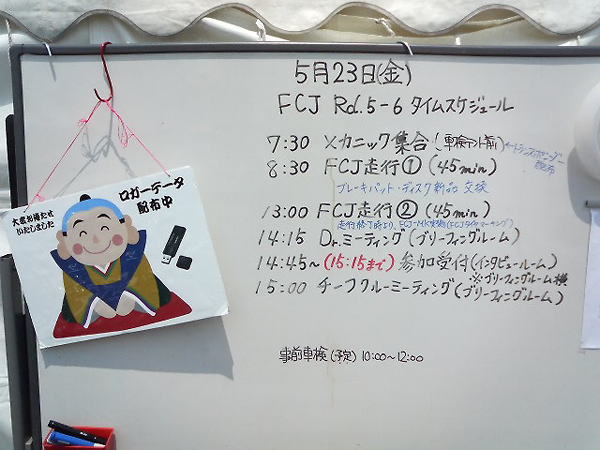 5月23日(金)
FCJ Rd.5-6 タイムスケジュール
7:30 メカニック集合!(車検テント前)←トランスポンダー
配布
8:30 FCJ走行① (45min)
ブレーキパット・ディスク新品 交換
13:00 FCJ走行② (45min)
走行終了時より、FCJ
14:15 Dr.ミーティング (ブリーフィングルーム)
14:45~(15:15まで) 参加受付(インタビュールーム)
※ブリーフィングルーム横
15:00 チーフクルーミーティング(ブリーフィングルーム)
事前車検 (予定) 10:00~12:00
大変お待たせ
いたしました
ロガーデータ
配布中